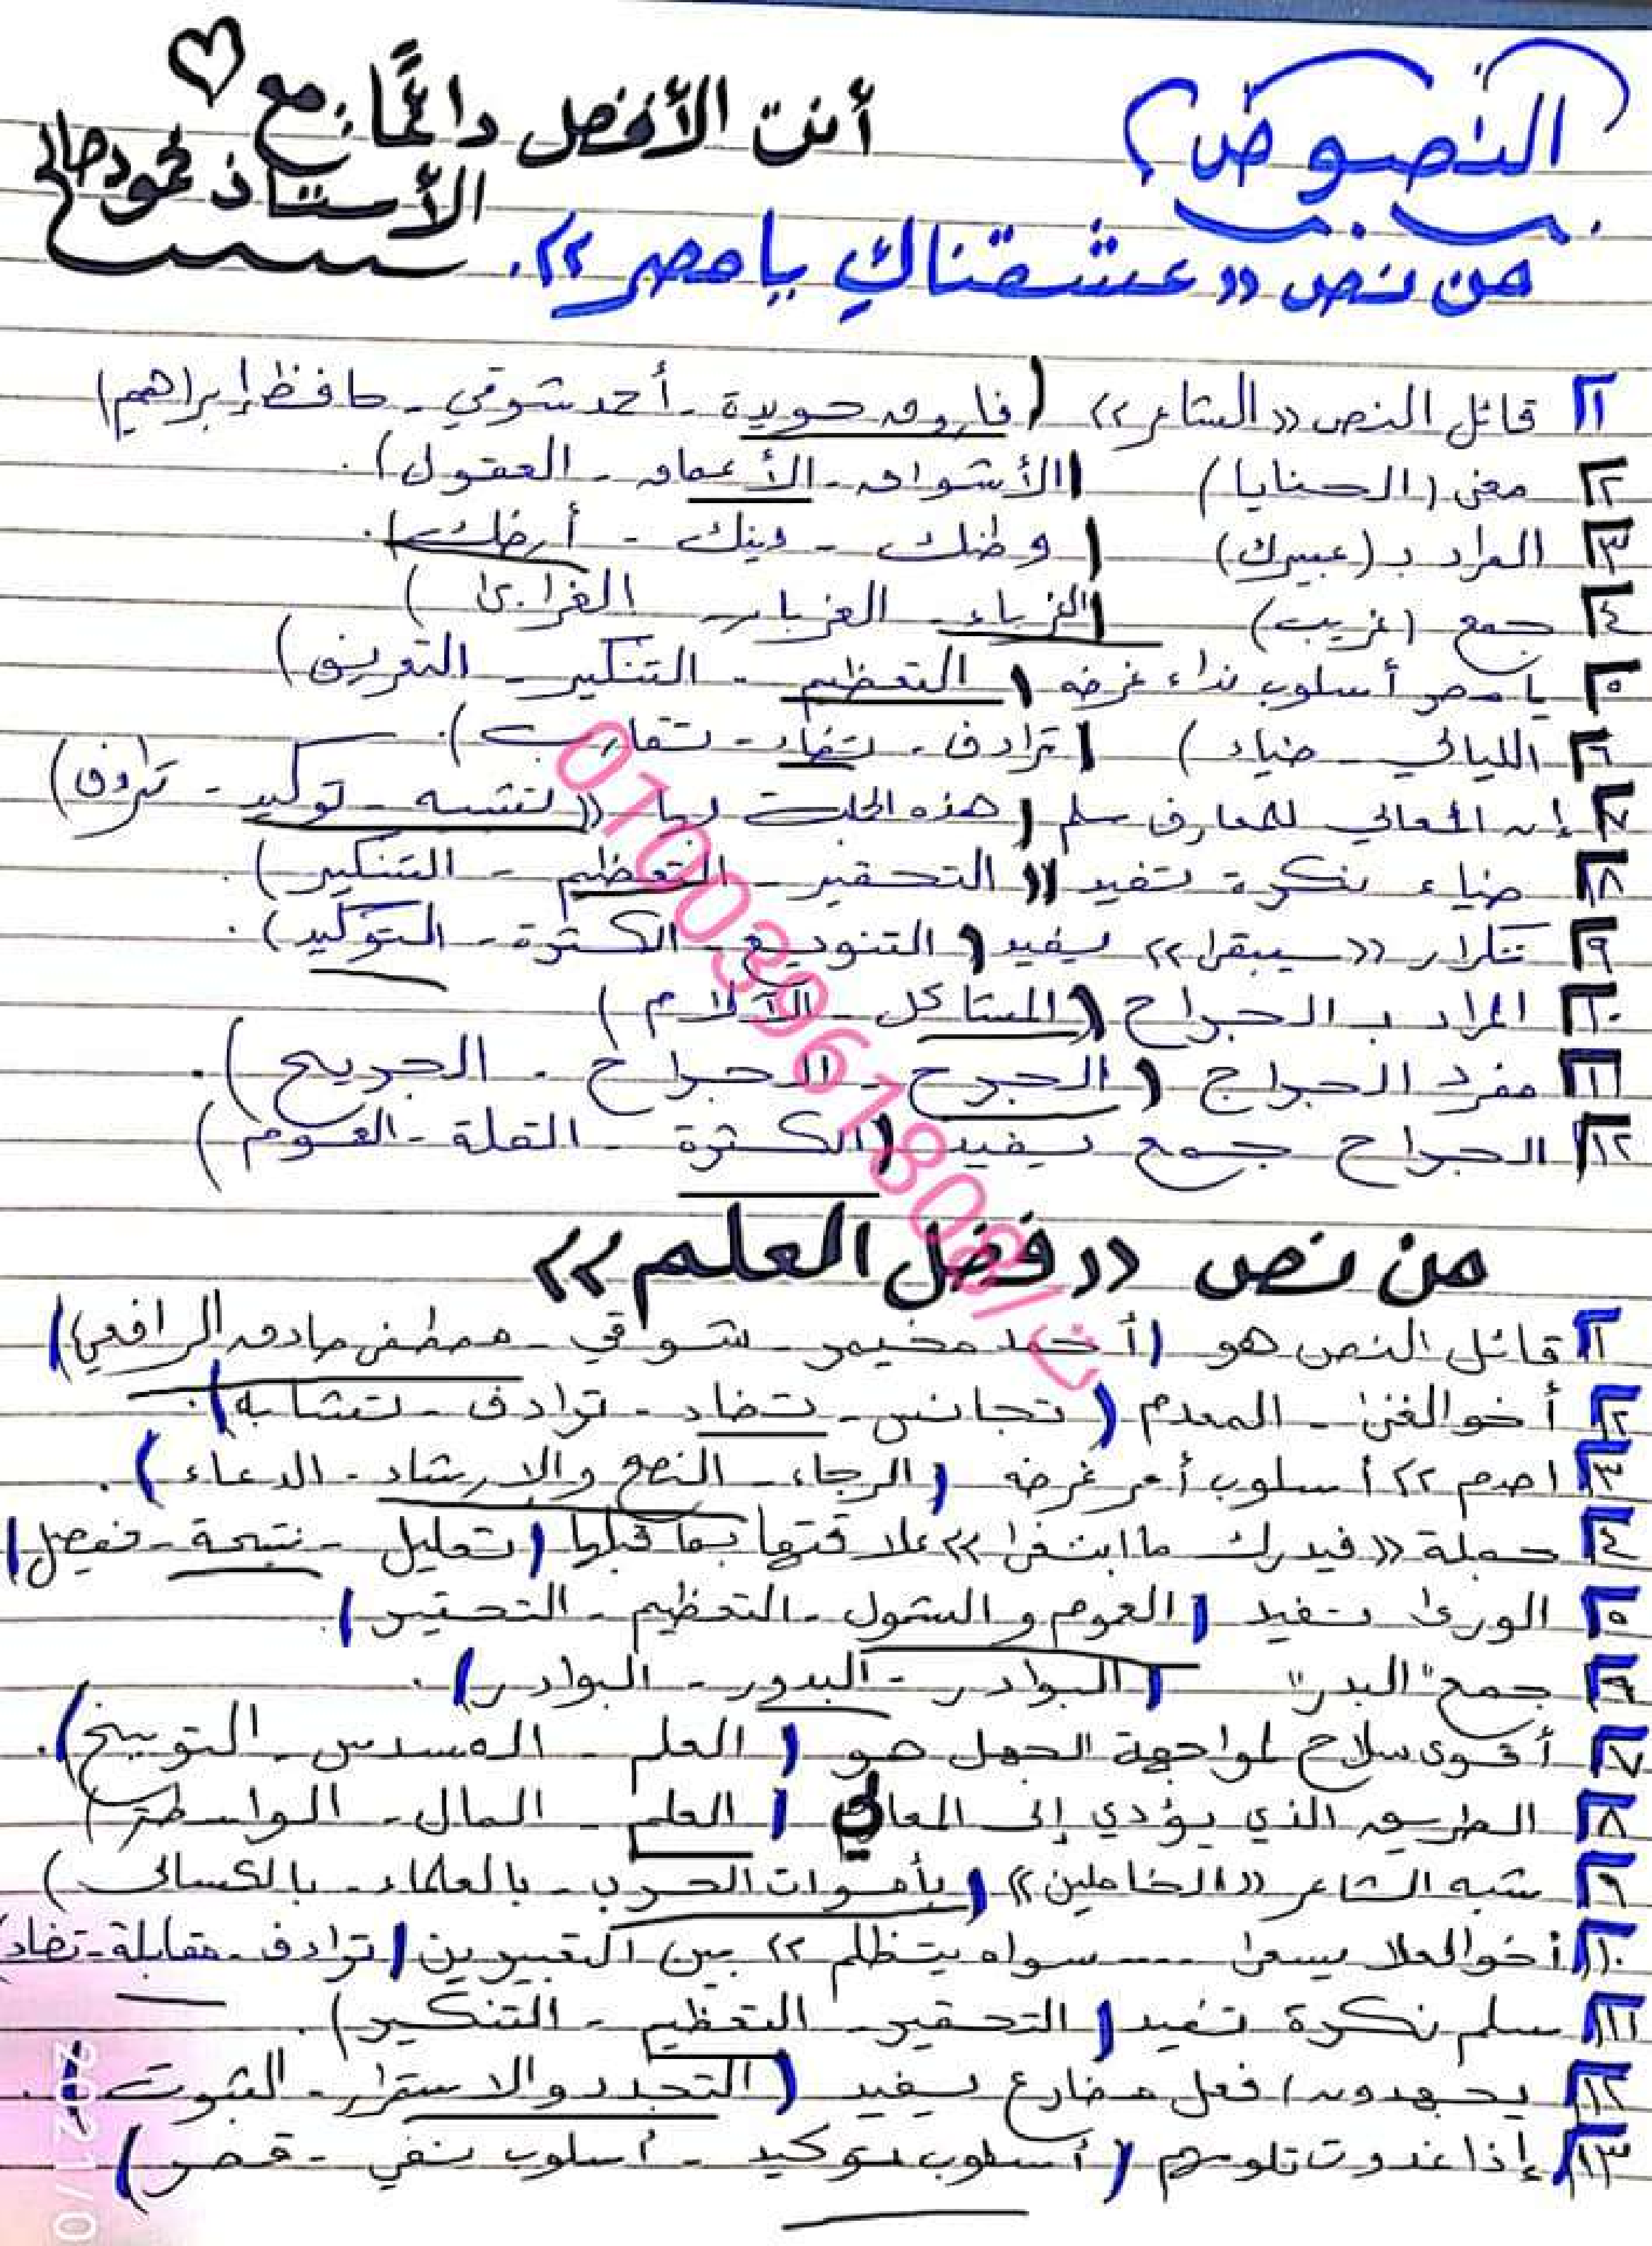 النصوص
أنت الأفضل دائمًا: مع
الأستاذ محمود
من نص «عشقناكِ يا مصر».
١ قائل النص «الشاعر» (فاروق جويدة - أحمد شوقي - حافظ إبراهيم)
٢ معنى (الحنايا) (الأشواق - الأعماق - العقول).
٣ المراد بـ (عبيرك) (وطنك - دينك - أرضك).
٤ جمع (غريب) (الغرباء - الغربار - الغرابى)
٥ يا مصر أسلوب نداء غرضه (التعظيم - التنكير - التعريف)
٦ الليالي - ضياء) (ترادف - تضاد - تقارب).
٧ إن المعالي للمعارف سلم (هذه الجملة بها «تشبيه - توكيد - ترادف)
٨ ضياء نكرة تفيد «التحقير - التعظيم - التنكير).
٩ تكرار «سيبقى» يفيد (التنويع - الكثرة - التوكيد).
١٠ المراد بـ الجراح (المشاكل - الآلام)
١١ مفرد الجراح (الجرح - الجراح - الجريح).
١٢ الجراح جمع يفيد (الكثرة - القلة - العموم)
من نص «فضل العلم»
١ قائل النص هو (أحمد مخيمر - شوقي - مصطفى صادق الرافعي)
٢ أخو الغنى - المعدم (تجانس - تضاد - ترادف - تشابه).
٣ اصرم» أسلوب أمر غرضه (الرجاء - النصح والإرشاد - الدعاء).
٤ جملة «فيدرك ما ابتغى» علاقتها بما قبلها (تعليل - نتيجة - تفصيل)
٥ الورى تفيد (العموم والشمول - التعظيم - التحقير).
٦ جمع "البدر" (البوادر - البدور - البوادر).
٧ أقوى سلاح لمواجهة الجهل هو (العلم - المسدس - التوبيخ).
٨ الطريق الذي يؤدي إلى المعالي (العلم - المال - الواسطة)
٩ شبه الشاعر «الخاملين» (بأموات الحرب - بالعلماء - بالكسالى)
١٠ أخو العلا يسعى .... سواه يتظلم» بين التعبيرين (ترادف - مقابلة - تضاد)
١١ سلم نكرة تفيد (التحقير - التعظيم - التنكير).
١٢ يجهدون) فعل مضارع يفيد (التجدد والاستمرار - الثبوت
١٣ إذا غدوت تلومهم (أسلوب توكيد - أسلوب نفي - قصر)